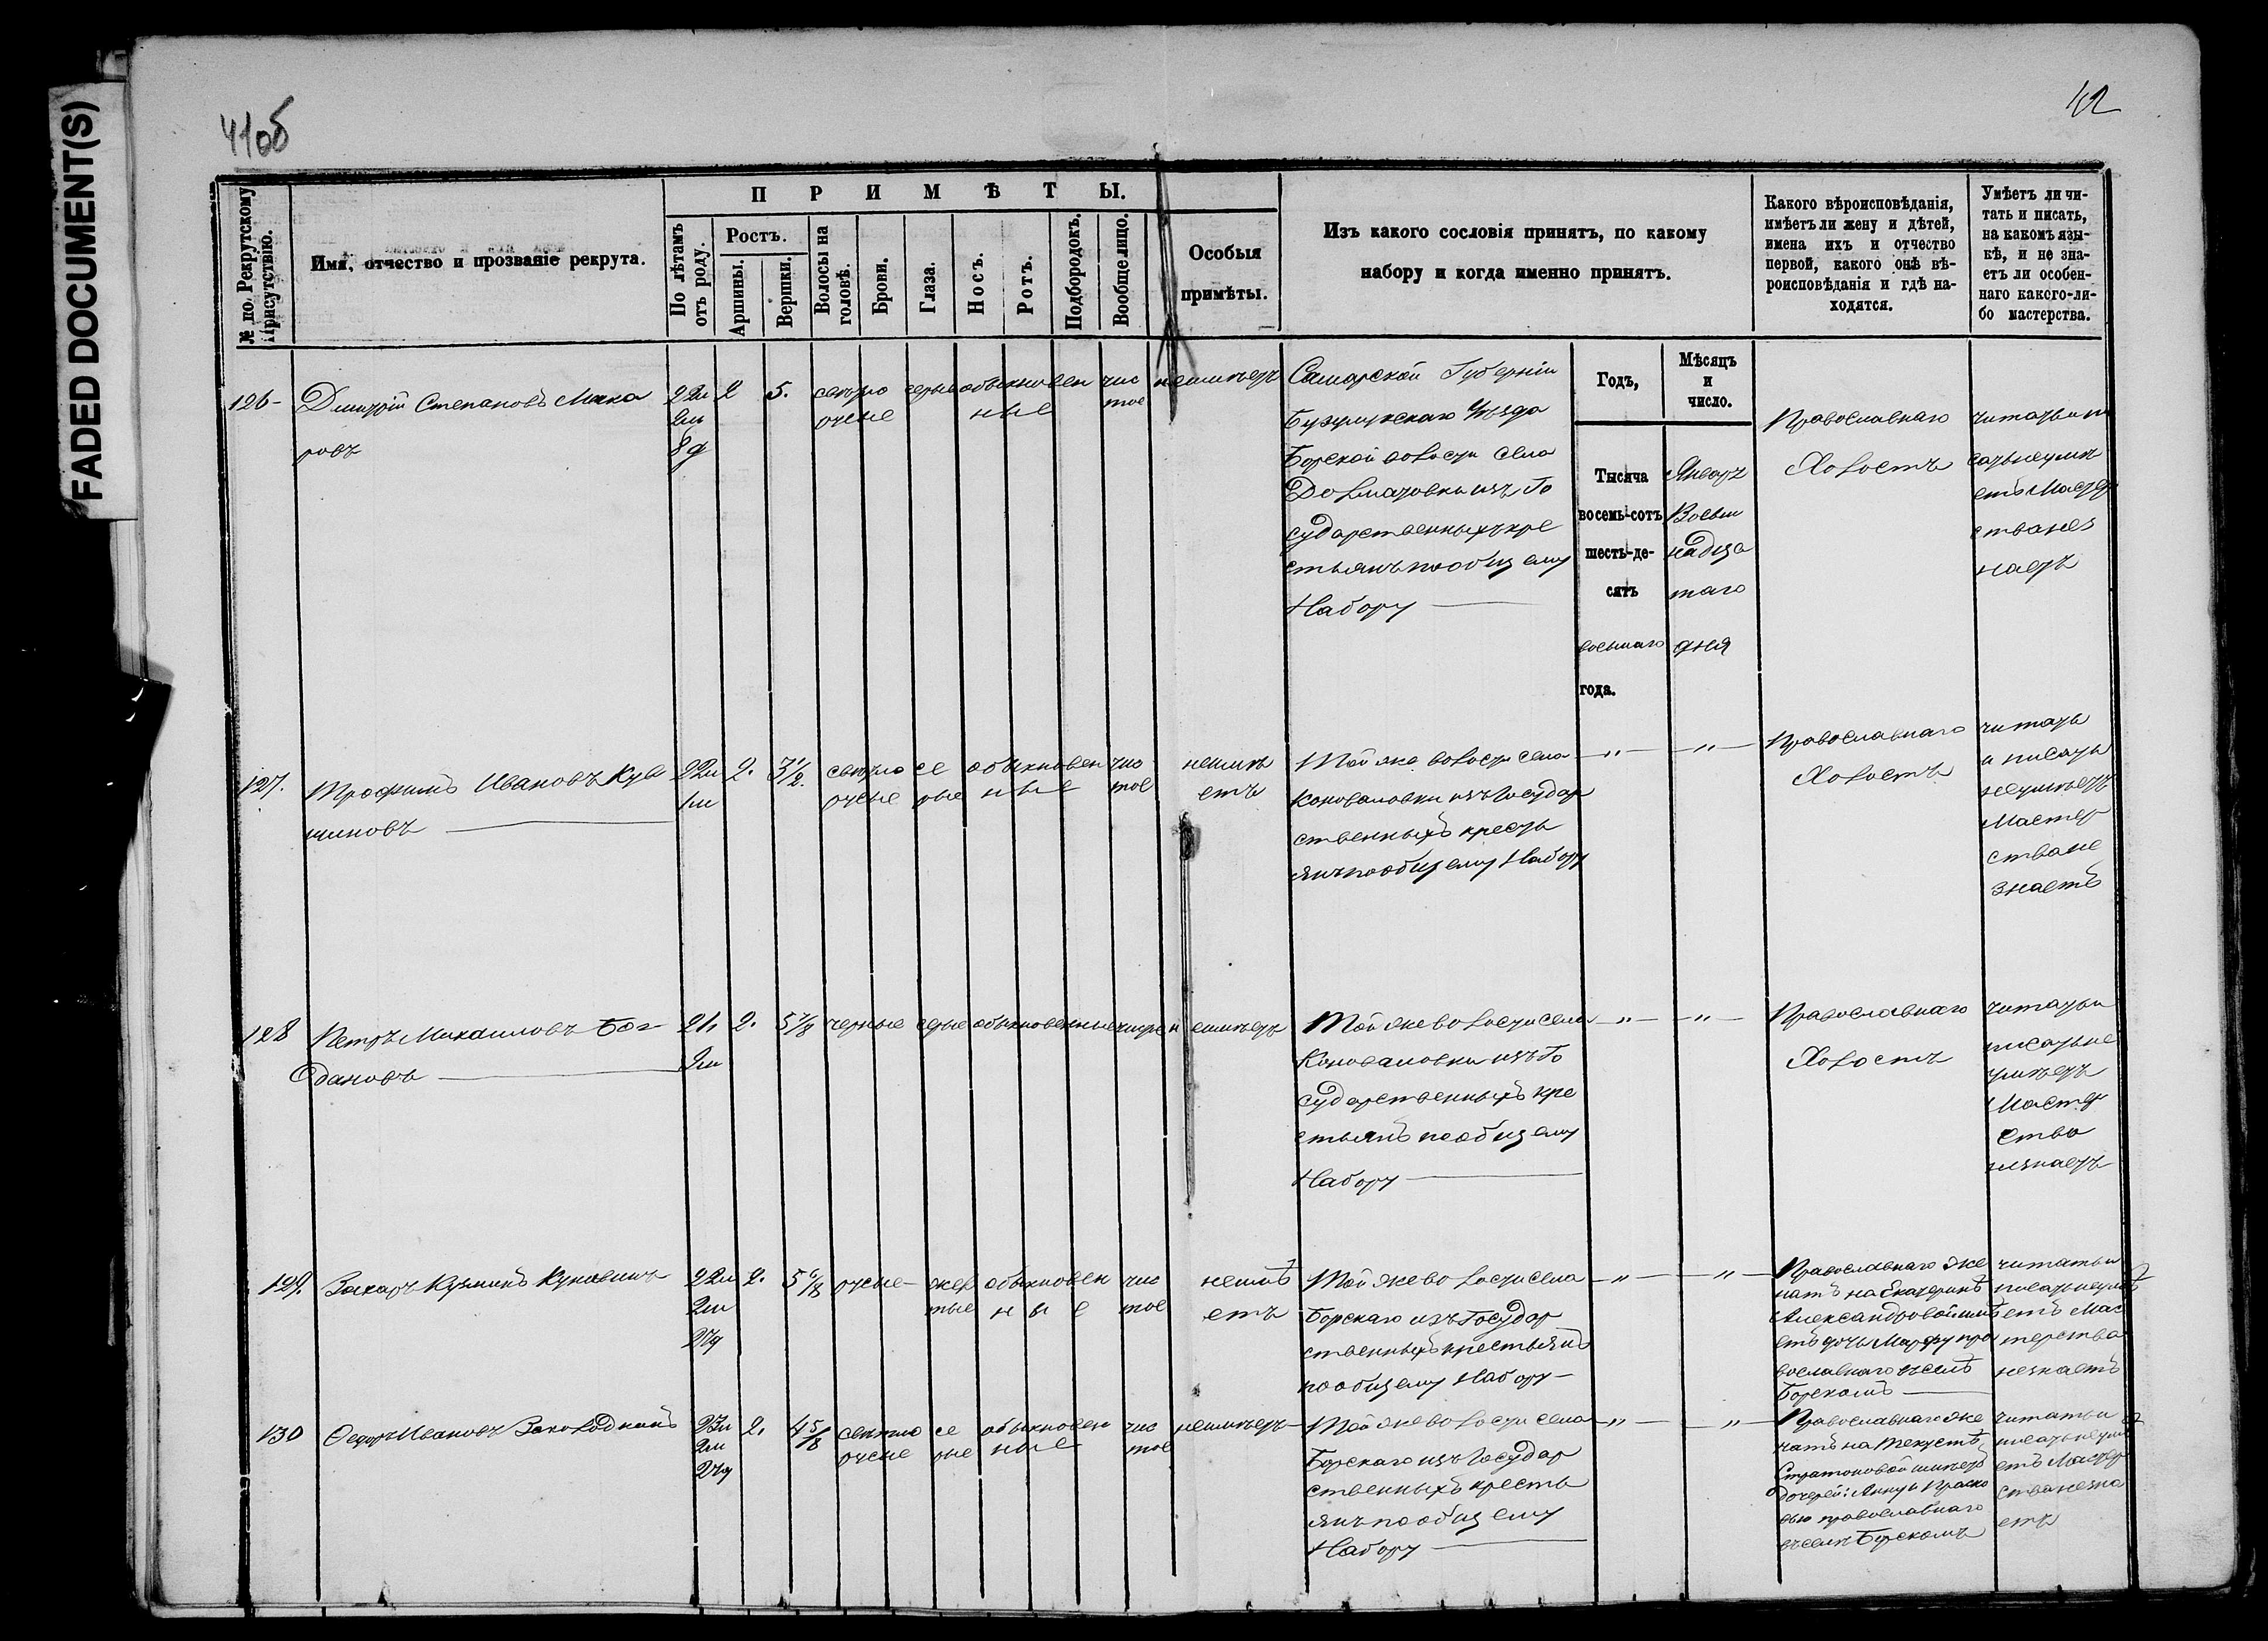 FADED DOCUMENT(S)
41об
42
№ по Рекрутскому Присутствію.
Имя, отчество и прозваніе рекрута.
ПРИМѢТЫ.
По лѣтамъ отъ роду.
Ростъ.
Аршины.
Вершки.
Волосы на головѣ.
Брови.
Глаза.
Носъ.
Ротъ.
Подбородокъ.
Вообще лицо.
Особыя
примѣты.
Изъ какого сословія принятъ, по какому
набору и когда именно принятъ.
Какого вѣроисповѣданія,
имѣетъ ли жену и дѣтей,
имена ихъ и отчество
первой, какого онѣ вѣ-
роисповѣданія и гдѣ на-
ходятся.
Умѣетъ ли чи-
тать и писать,
на какомъ язы-
кѣ, и не зна-
етъ ли особен-
наго какого-ли-
бо мастерства.
Годъ,
Мѣсяцъ
и
число.
126
Дмитрій Степановъ Мака
ровъ
22л
2м
8д
2
5.
светло
русые
серые
обыкновен
ные
чис
тое
неимѣетъ
Самарской Губерніи
Бузулукскаго Уѣзда
Борской волости села
Долматовки изъ Го
сударственныхъ кре
стьянъ по общему
Набору
Тысяча
восемь-сотъ
шесть-де-
сятъ
восьмаго
года.
Январь
Восьм
надца
таго
дня
Православнаго
Холостъ
читать и пи
сать неумѣ
етъ Мастер
ства нез
наетъ
127.
Трофимъ Ивановъ Кув
шиновъ
22л
1м
2.
3 1/2.
светло
русые
се
рые
обыкновен
ные
чис
тое
неимѣ
етъ
Той же волости села
Коноваловки изъ Государ
ственныхъ кресть
янъ по общему Набору
Православнаго
Холостъ
читать
и писать
неумѣетъ
Мастер
ства не
знаетъ
128
Петръ Михаиловъ Бог
дановъ
21л
2м
2.
5 7/8
черные
серые
обыкновенные
чистое
неимѣетъ
Той же волости села
Коноваловки изъ Го
сударственныхъ кре
стьянъ по общему
Набору
Православнаго
Холостъ
читать и
писать не
умѣетъ
Мастер
ство
незнаетъ
129.
Захаръ Кузминъ
22л
2м
27д
2.
5 6/8
русые
жел
тые
обыкновен
ные
чис
тое
неимѣ
етъ
Той же волости села
Борскаго изъ Государ
ственныхъ крестьянъ
по общему Набору
Православнаго же
натъ на Екатеринѣ
Александровой имѣ
етъ дочь Марфу пра
вославнаго въ селѣ
Борскомъ
читать и
писать неумѣ
етъ Мас
терства
незнаетъ
130
Ѳедоръ Ивановъ
23л
2м
27д
2.
4 5/8
светло
русые
се
рые
обыкновен
ные
чис
тое
неимѣетъ
Той же волости села
Борскаго изъ Государ
ственныхъ кресть
янъ по общему
Набору
Православнаго же
натъ на
имѣетъ
дочерей: Анну и Праско
вью православнаго
въ селѣ Борскомъ
читать и
писать неумѣ
етъ Мастер
ства незна
етъ